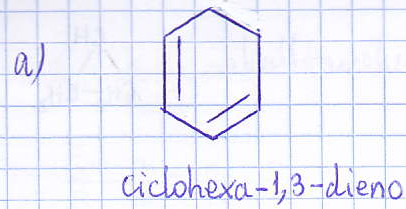 a)
ciclohexa-1,3-dieno